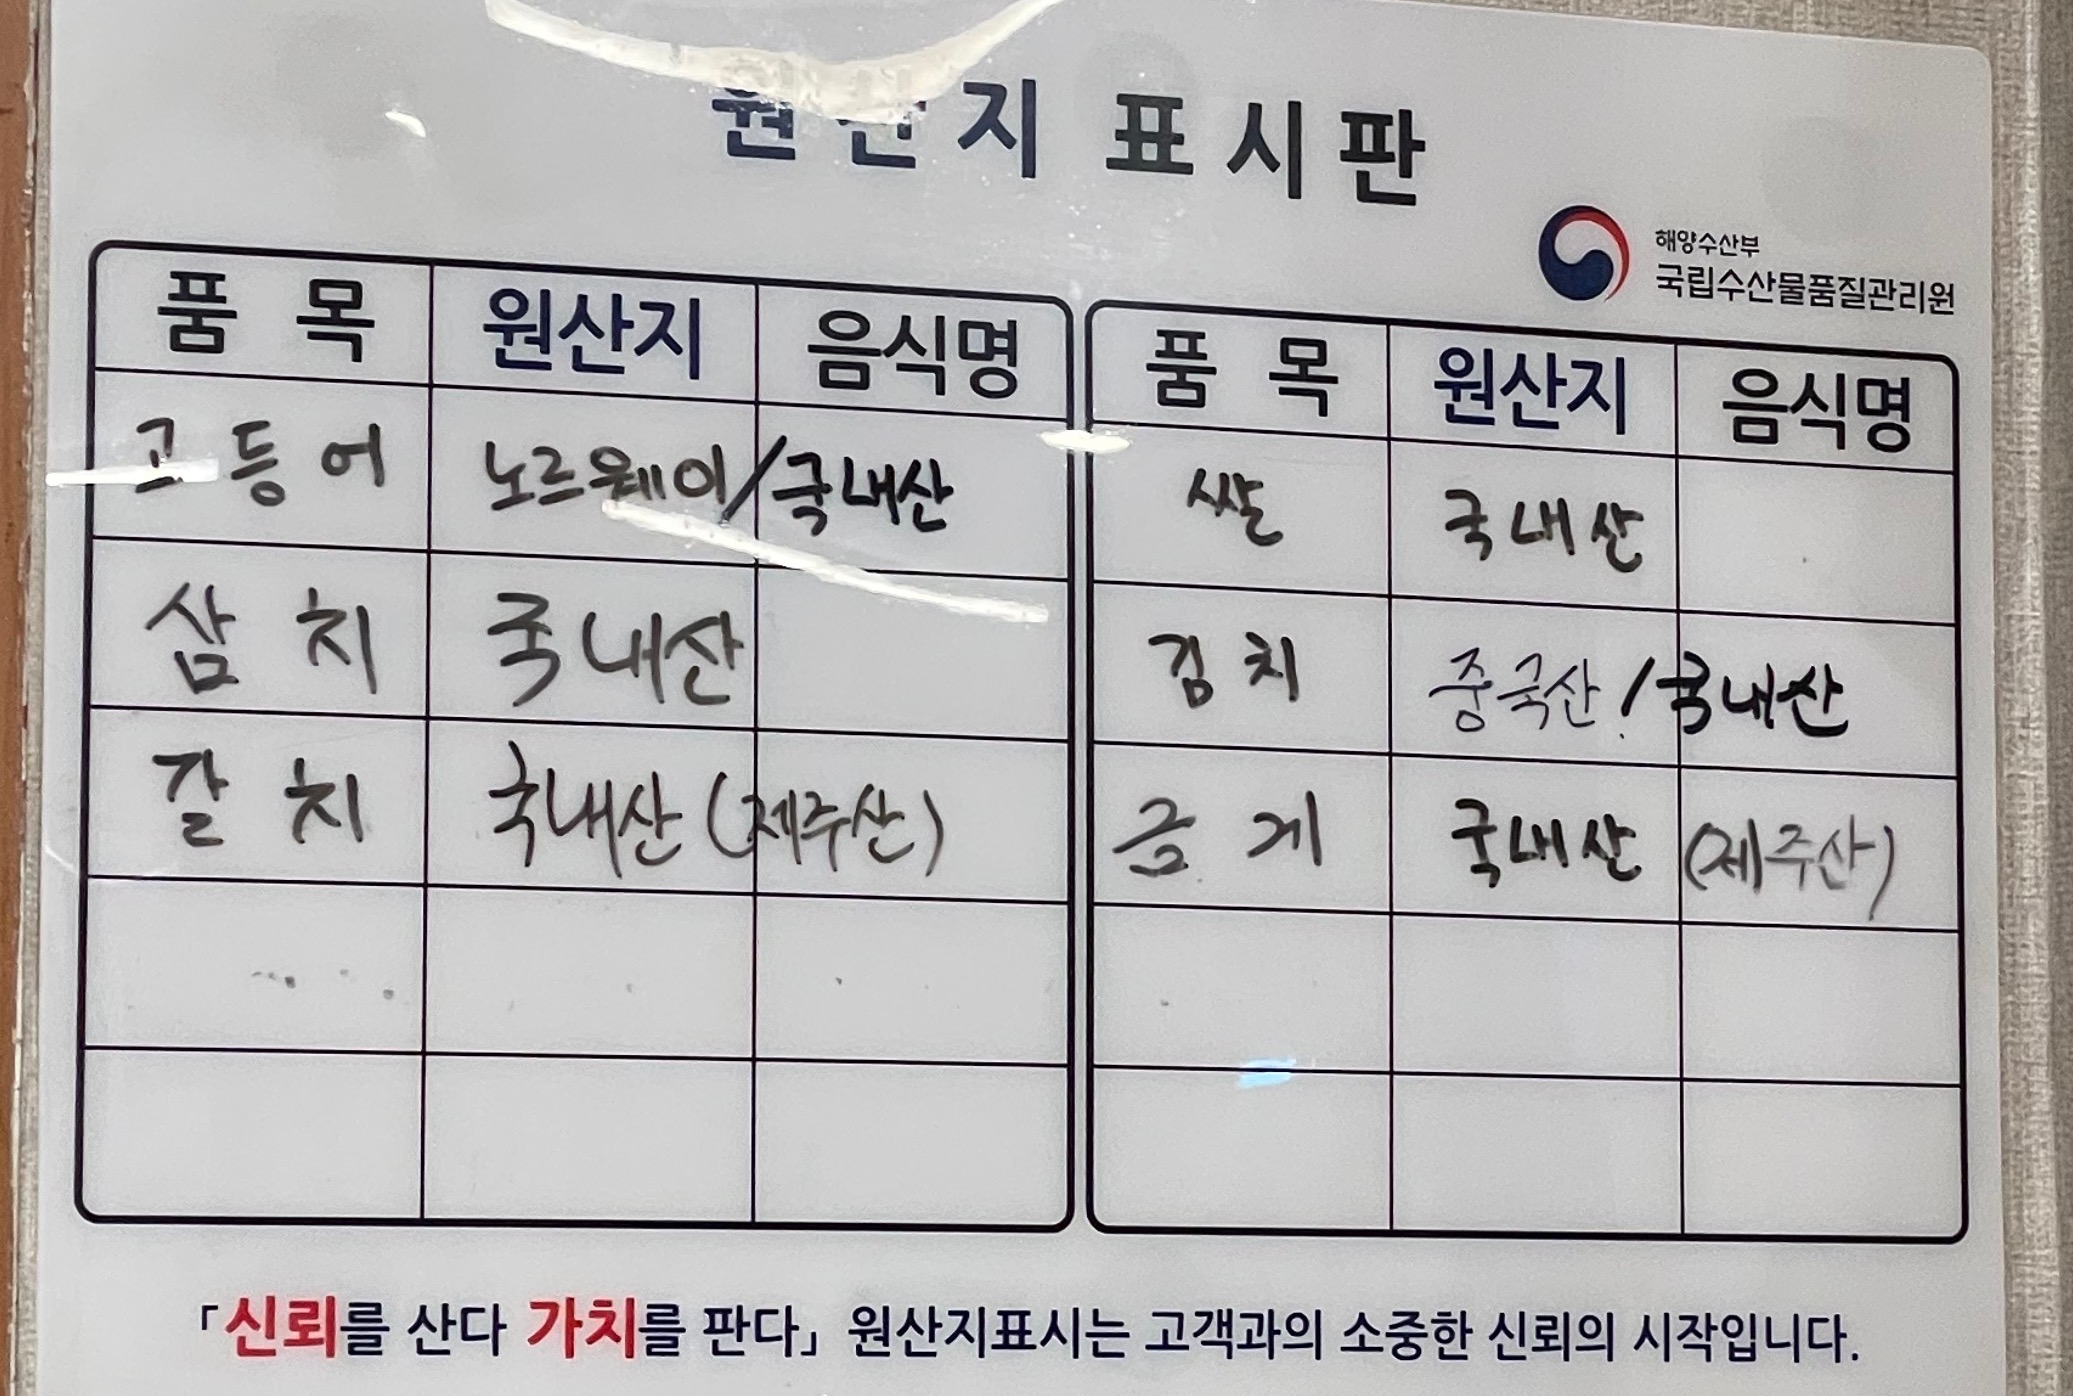 원산지 표시판
해양수산부
국립수산물품질관리원
품 목 원산지 음식명
고등어 노르웨이/국내산
삼치 국내산
갈치 국내산(제주산)
품 목 원산지 음식명
쌀 국내산
김치 중국산/국내산
금게 국내산(제주산)
「신뢰를 산다 가치를 판다」 원산지표시는 고객과의 소중한 신뢰의 시작입니다.